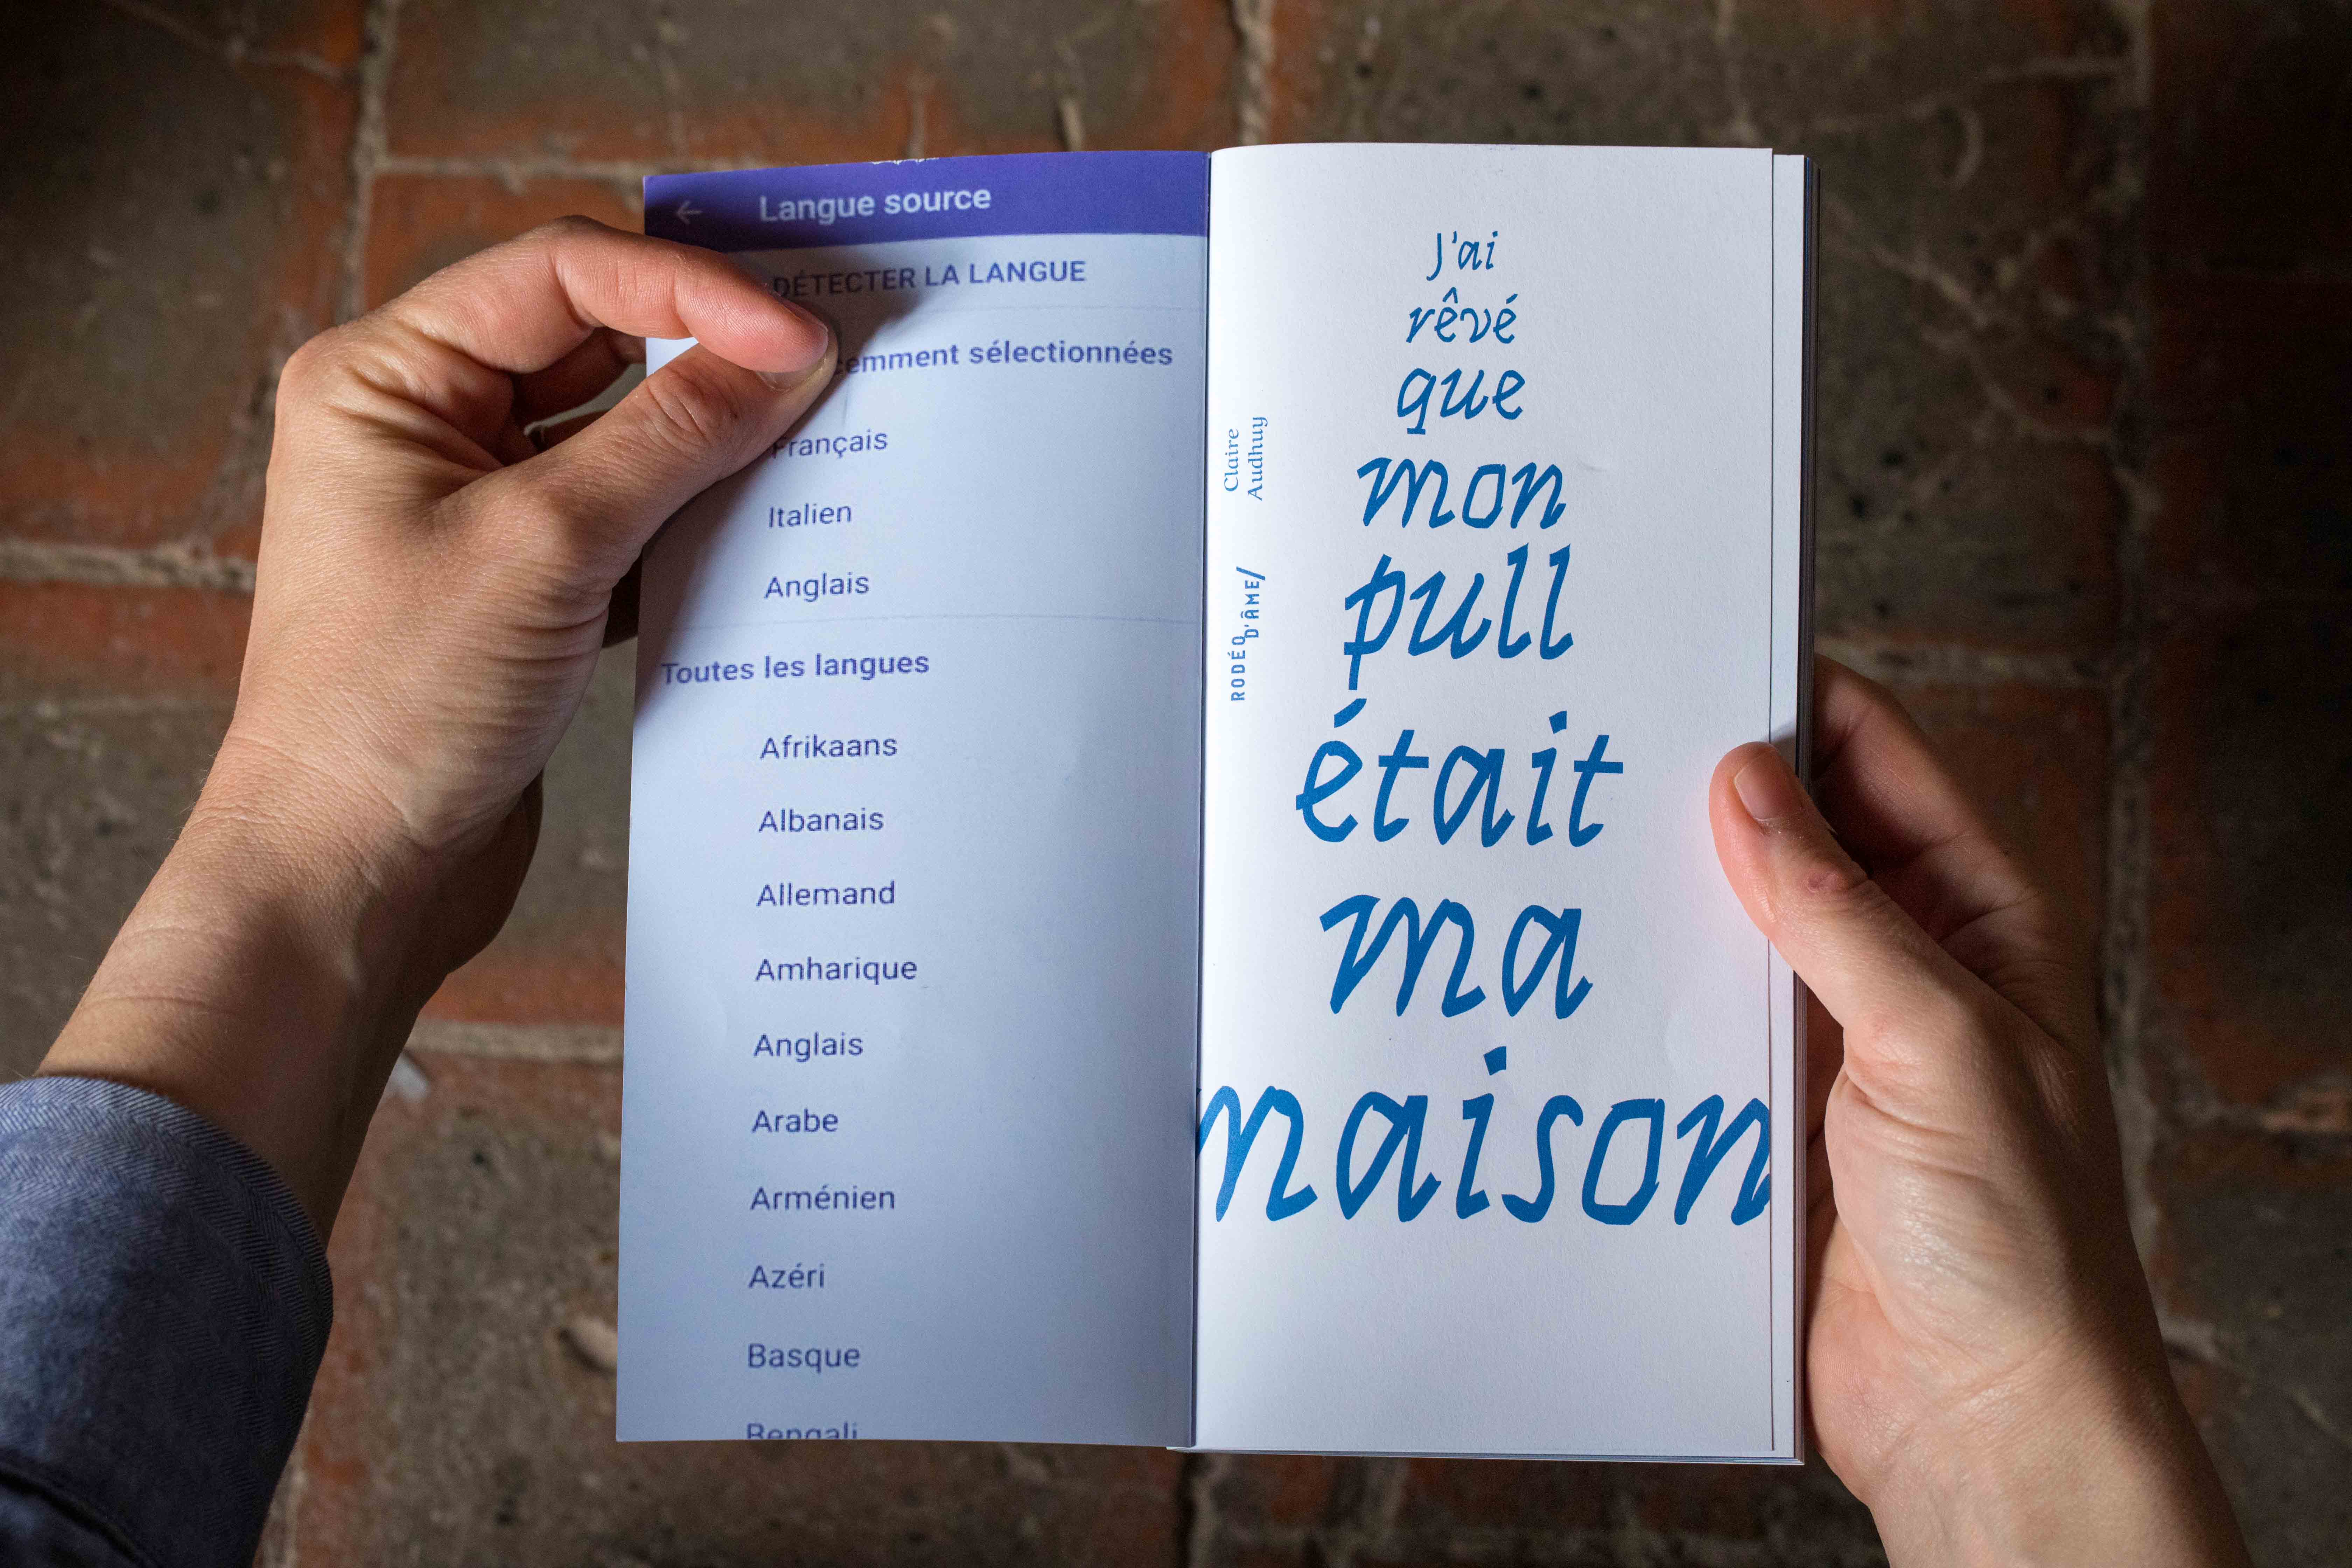 Langue source
DÉTECTER LA LANGUE
sélectionnées
Français
Italien
Anglais
Toutes les langues
Afrikaans
Albanais
Allemand
Amharique
Anglais
Arabe
Arménien
Azéri
Basque
Bengali
Claire
Audhuy
RODÉO
D'ÂME/
J'ai
rêvé
que
mon
pull
était
ma
maison